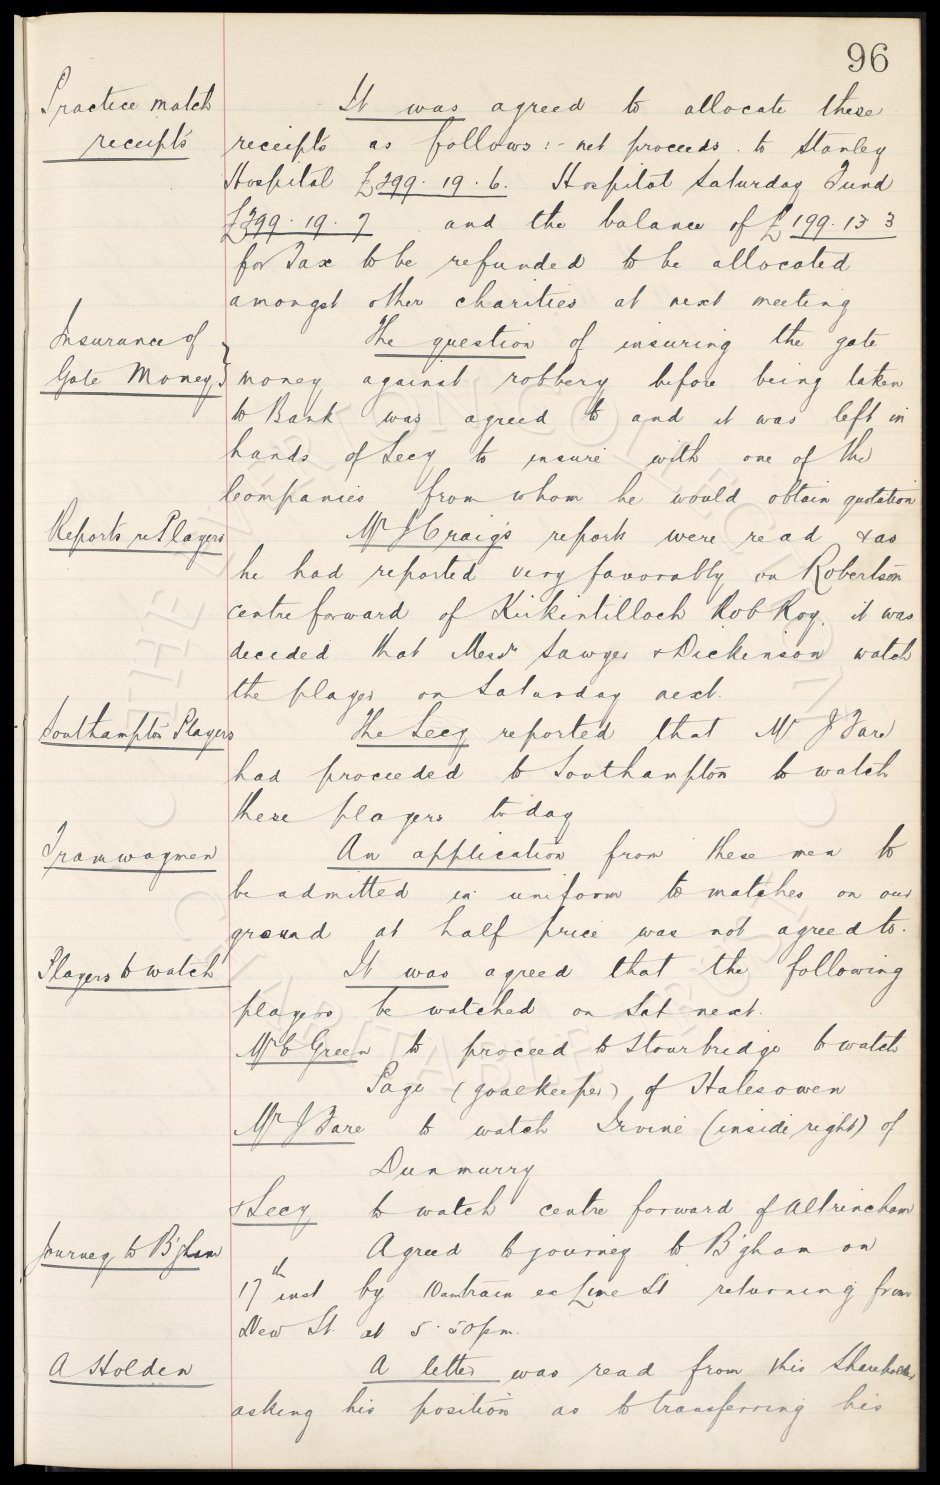 96
Practice match
receipts
It was agreed to allocate these
receipts as follows :- net proceeds to Stanley
Hospital £399. 19. 6. Hospital Saturday Fund
£399. 19. 7 and the balance of £199. 13 3
for Tax to be refunded to be allocated
amongst other charities at next meeting
Insurance of
Gate Money
The question of insuring the gate
money against robbery before being taken
to Bank was agreed to and it was left in
hands of Secy to insure with one of the
Companies from whom he would obtain quotation
Reports re Players
Mr J Craig's reports were read & as
he had reported very favorably on Robertson
centre forward of Kirkintilloch Rob Roy, it was
decided that Messrs Sawyer & Dickinson watch
the player on Saturday next.
Southampton Players
The Secy reported that Mr J Fare
had proceeded to Southampton to watch
these players today
Tramwaymen
An application from these men to
be admitted in uniform to matches on our
ground at half price was not agreed to.
Players to watch
It was agreed that the following
players be watched on Sat next.
Mr C Green to proceed to Stourbridge to watch
Page (goalkeeper) of Halesowen
Mr J Fare to watch Irvine (inside right) of
Dunmurry
& Secy to watch centre forward of Altrincham
Journey to B'gham
Agreed to journey to B'gham on
17th inst by 10am train ex Lime St returning from
New St. at 5.50pm.
A Holden
A letter was read from this Shareholder
asking his position as to transferring his
THE EVERTON COLLECTION CHARITABLE TRUST